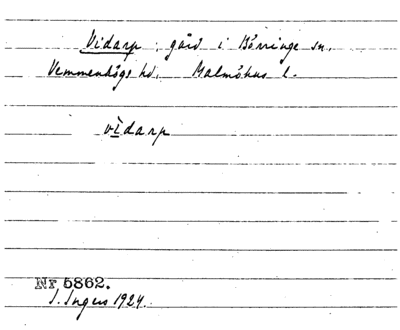 Vidarp, gård i Börringe sn.
Vemmenhögs hd. Malmöhus l.
vìdarp
Nr 5862.
I. Ingers 1924.